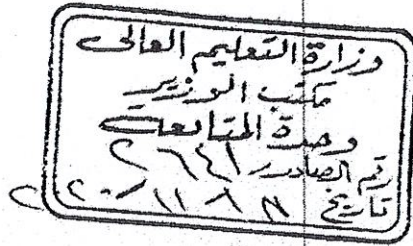 وزارة التعليم العالى
مكتب الوزير
وحدة المتابعة
رقم الصادر ٢٦٤١
تاريخ